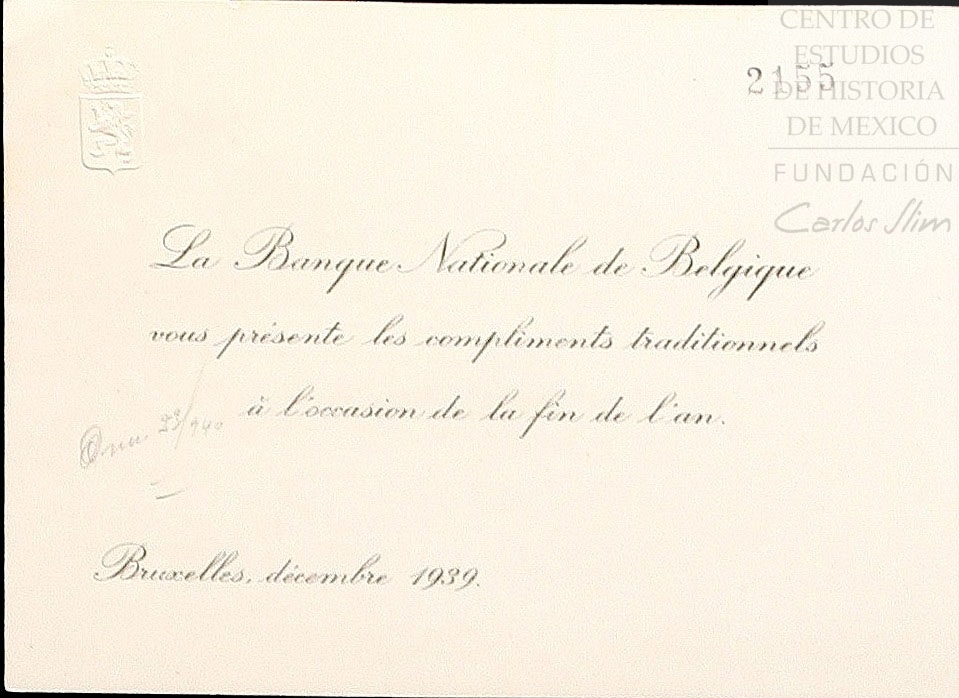 CENTRO DE
ESTUDIOS
DE HISTORIA
DE MEXICO
FUNDACIÓN
Carlos Slim
2155
La Banque Nationale de Belgique
vous présente les compliments traditionnels
à l'occasion de la fin de l'an.
23/940
Bruxelles, décembre 1939.